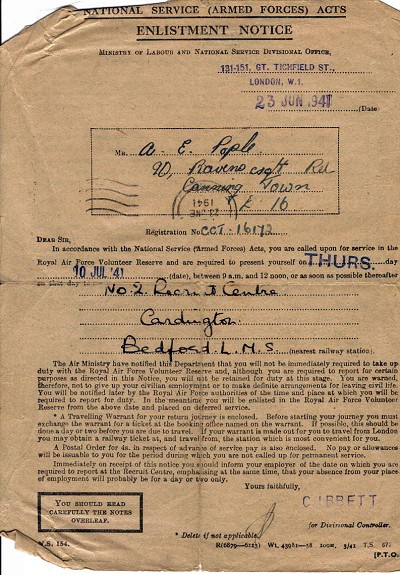 NATIONAL SERVICE (ARMED FORCES) ACTS
ENLISTMENT NOTICE
MINISTRY OF LABOUR AND NATIONAL SERVICE DIVISIONAL OFFICE,
131-151, GT. TICHFIELD ST.,
LONDON, W.1.
23 JUN 1941
(Date)
MR. A. E. Pople
90, Ravenscroft Rd
Canning Town
E 16
23 JNE
1941
Registration No. CCT-16172
DEAR SIR,
In accordance with the National Service (Armed Forces) Acts, you are called upon for service in the
Royal Air Force Volunteer Reserve and are required to present yourself on THURS. day
10 JUL '41 (date), between 9 a.m. and 12 noon, or as soon as possible thereafter
on that day to
No 2. Recruit Centre
Cardington
Bedford L.M.S. (nearest railway station).
The Air Ministry have notified this Department that you will not be immediately required to take up
duty with the Royal Air Force Volunteer Reserve and, although you are required to report for certain
purposes as directed in this Notice, you will not be retained for duty at this stage. You are warned,
therefore, not to give up your civilian employment or to make definite arrangements for leaving civil life.
You will be notified later by the Royal Air Force authorities of the time and place at which you will be
required to report for duty. In the meantime you will be enlisted in the Royal Air Force Volunteer
Reserve from the above date and placed on deferred service.
* A Travelling Warrant for your return journey is enclosed. Before starting your journey you must
exchange the warrant for a ticket at the booking office named on the warrant. If possible, this should be
done a day or two before you are due to travel. If your warrant is made out for you to travel from London
you may obtain a railway ticket at, and travel from, the station which is most convenient for you.
A Postal Order for 4s. in respect of advance of service pay is also enclosed. No pay or allowances
will be issuable to you for the period during which you are not called up for permanent service.
Immediately on receipt of this notice you should inform your employer of the date on which you are
required to report at the Recruit Centre, emphasising at the same time, that your absence from your place
of employment will probably be for a day or two only.
Yours faithfully,
C. IBBETT
for Divisional Controller.
YOU SHOULD READ
CAREFULLY THE NOTES
OVERLEAF.
* Delete if not applicable.
N.S. 154.
[P.T.O.